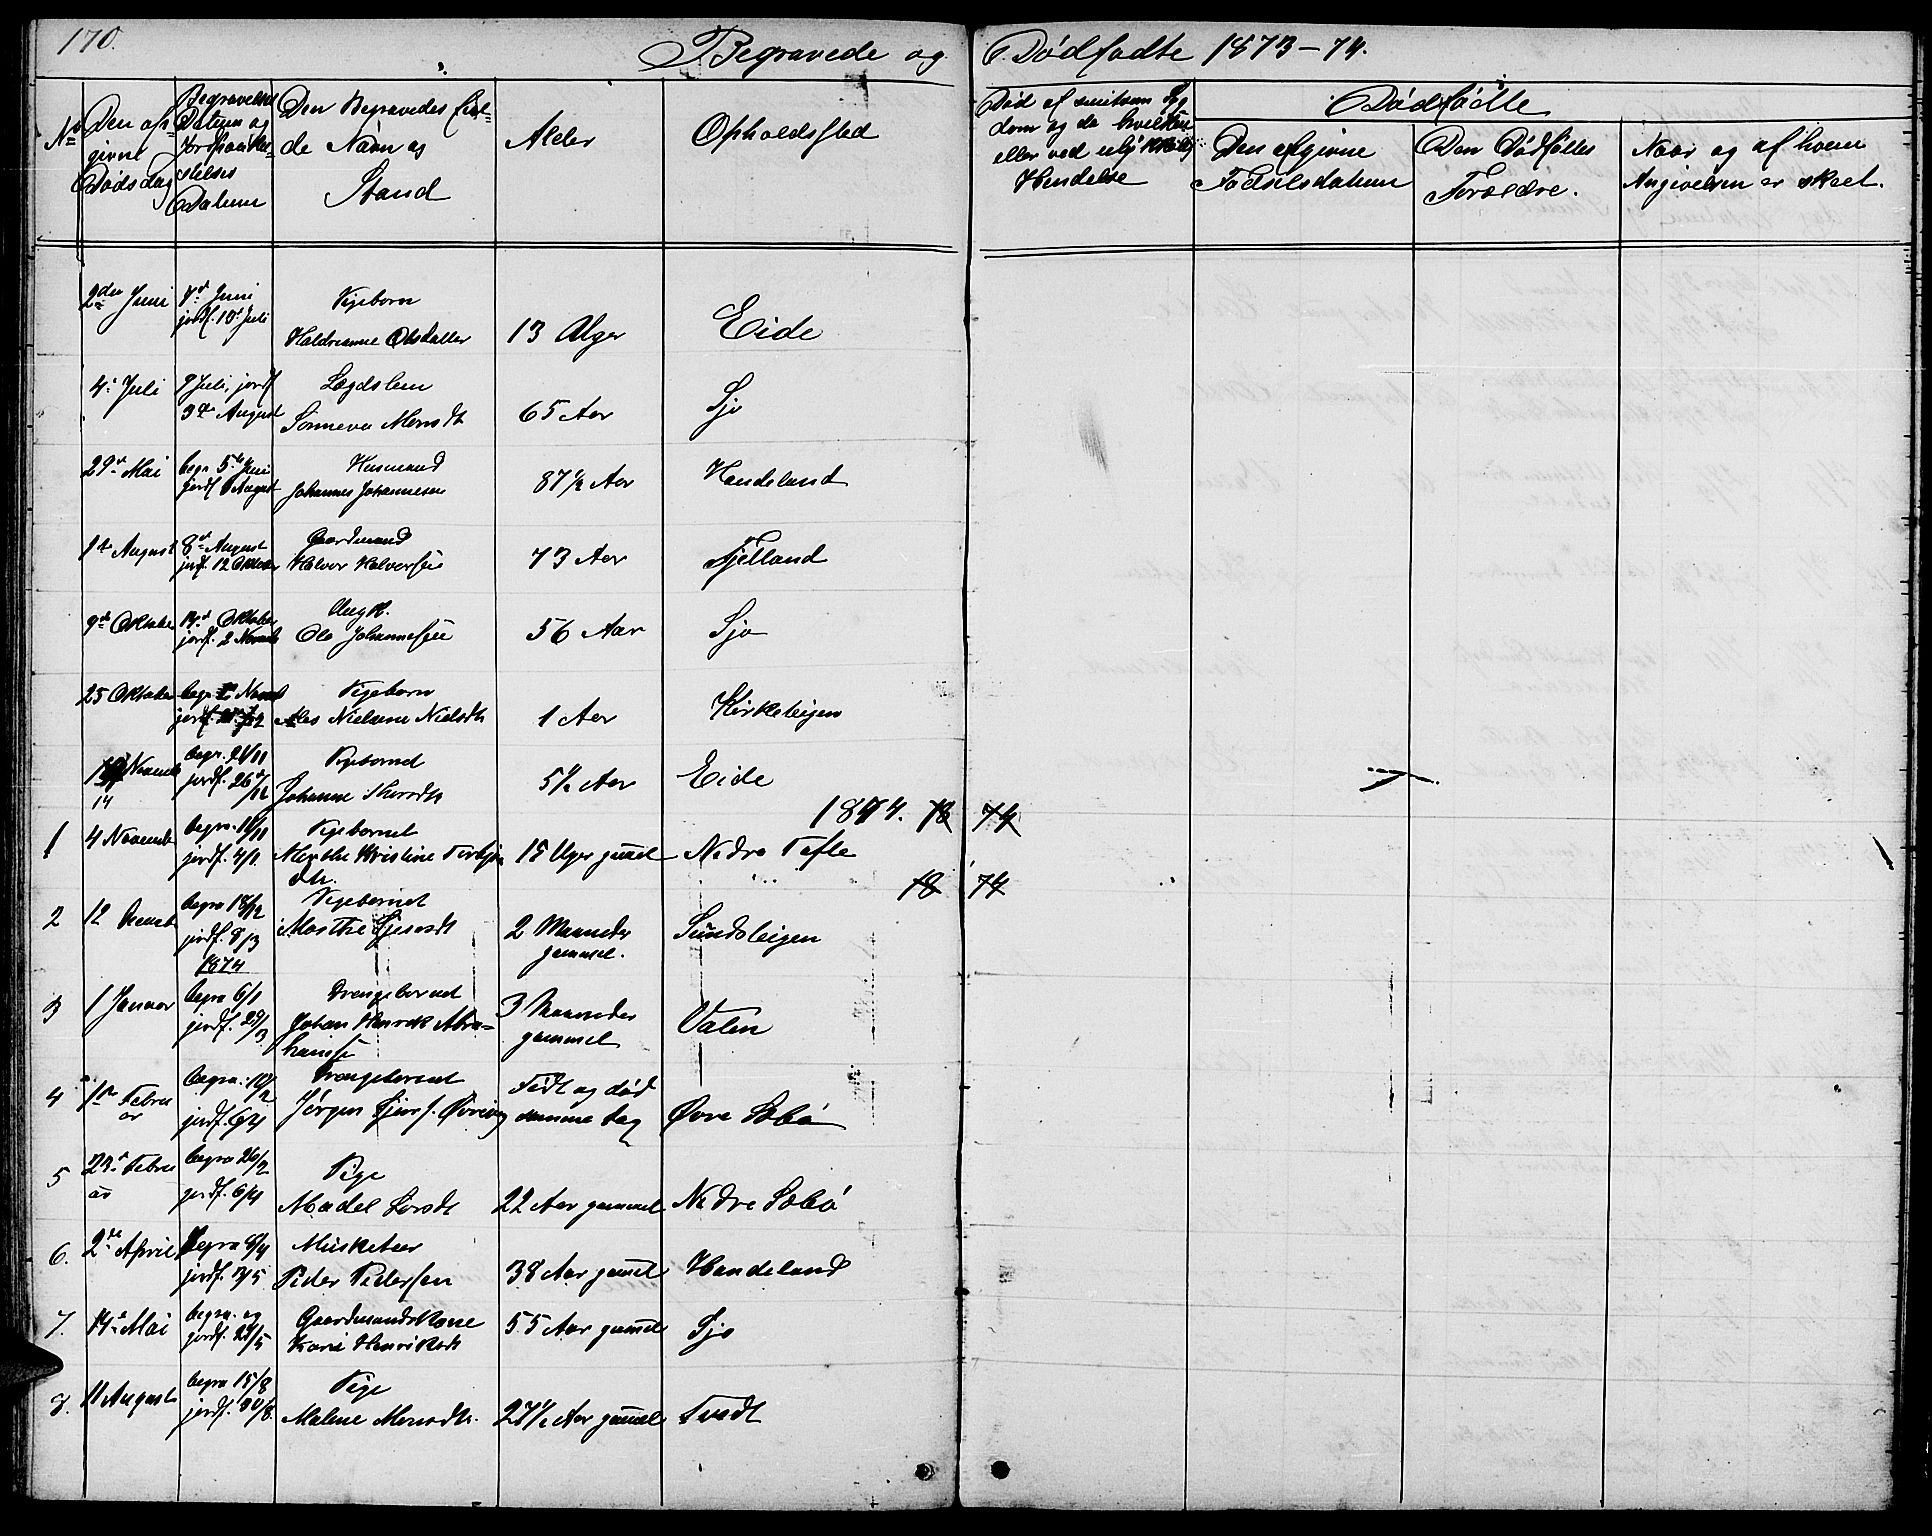 170.
Begravede og Dødfødte 1873-74.
No
Den op-
givne
Dødsdag
Begravelses
Datum og
Jordpaakas-
telses
Datum
Den Begravedes ful-
de Navn og
Stand
Alder
Opholdssted
Død af smitsom Syg
dom og da hvilken
eller ved ulykkelig
Hendelse
Dødfødte
Den opgivne
Fødselsdatum
Den Dødfødtes
Forældre.
Naar og af hvem
Angivelsen er skeet.
2den Juni
7de Juni
jordf. 10de Juli
Pigebarn
13 Uger
Eide
4de Juli
9 Juli, jordf
3die August
Lægdslem
Sønneva Monsdt
65 Aar
Sjo
29de Mai
begr 5te Juni
jordf August
Husmand
Johannes Johannesen
87 1/2 Aar
Handeland
1ste August
8de August
jordf. 12 Oktober
Gaardmand
Halvor Halvorsen
73 Aar
Fjelland
9de Oktober
14de Oktober
jordf. 2 Novemb
Ungk.
Ole Johannessen
56 Aar
Sjo
25 Oktober
begr Novemb
jordf.
Pigebarn
Nielsine Nielsdt
1 Aar
Kirkeleigen
14 Novemb
14
begr. 21/11
jordf. 26/12
Pigebarnet
Johanne
5 1/2 Aar
Eide
1874. 18 74
1
4 Novemb
jordf. 4/1
Pigebarnet
Marthe Kristine Torbjøn
dtr.
15 Uger gammel
Nedre Tefle
18 74
2
begra 18/12
jordf. 8/3
1874
Pigebarnet
Marthe
2 Maaneder
gammel.
Sundsleigen
3
1 Januar
begra 6/1
jordf. 29/3
Drengebarnet
Johan Henrik Abra-
hamsen
3 Maaneder
gammel
Valen
4
1ste Febru
ar
begra: 12/2
jordf. 6/4
Drengebarnet
Jørgen
Født og død
samme dag
Øvre Sæbø
5
Febru
ar
begra 26/2
jordf. 6/4
Pige
Madel Larsdt
22 Aar gammel
Nedre Sæbø
6.
2de April
begra 8/4
jordf. 3/5
Musketeer
Peder Pedersen
38 Aar gammel
Handeland
7.
14de Mai
begra. og
jordf. 21/5
Gaardmandskone
Kari Henriksdt
55 Aar gammel
Sjo
8.
11 August
begra 15/8
jordf. 30/8.
Pige
Malene Monsdtr.
27 1/2 Aar gammel
Tvedt